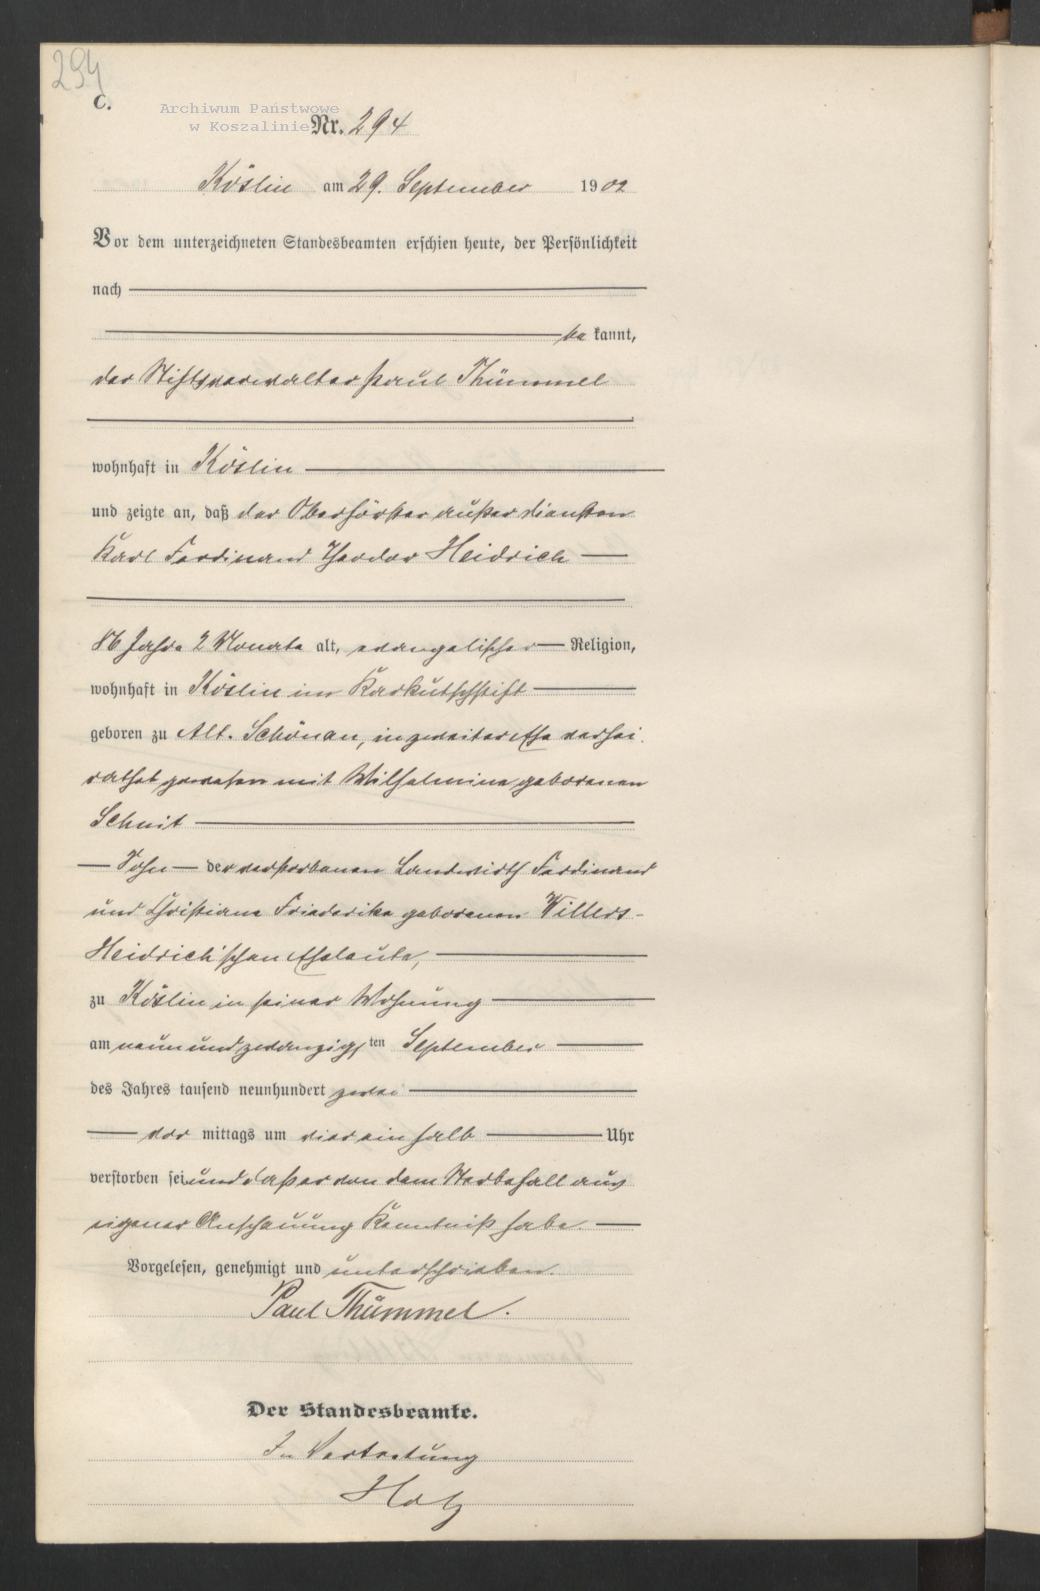 294
C.
Archiwum Państwowe
w Koszalinie
Nr. 294
Köslin am 29. September 1902
Vor dem unterzeichneten Standesbeamten erschien heute, der Persönlichkeit
nach
be kannt,
der Stiftsverwalter Paul Thümmel
wohnhaft in Köslin
und zeigte an, daß der Oberförster außer Diensten
Karl Ferdinand Theodor Heidrich
86 Jahre 2 Monate alt, evangelischer Religion,
wohnhaft in Köslin im Karkutschstift
geboren zu Alt-Schönau, in zweiter Ehe verhei-
rathet gewesen mit Wilhelmine geborenen
Schmit
Sohn der verstorbenen Landwirth Ferdinand
und Christiane Friederike geborenen Willers-
Heidrich'schen Eheleute,
zu Köslin in seiner Wohnung
am neunundzwanzigs ten September
des Jahres tausend neunhundert zwei
vor mittags um vier ein halb Uhr
verstorben sei und daß er von dem Sterbefall aus
eigener Anschauung Kenntniß habe.
Vorgelesen, genehmigt und unterschrieben.
Paul Thümmel.
Der Standesbeamte.
In Vertretung
Holz